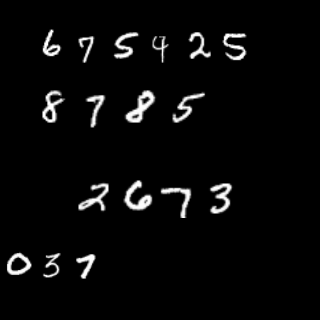 675425
8785
2673
037